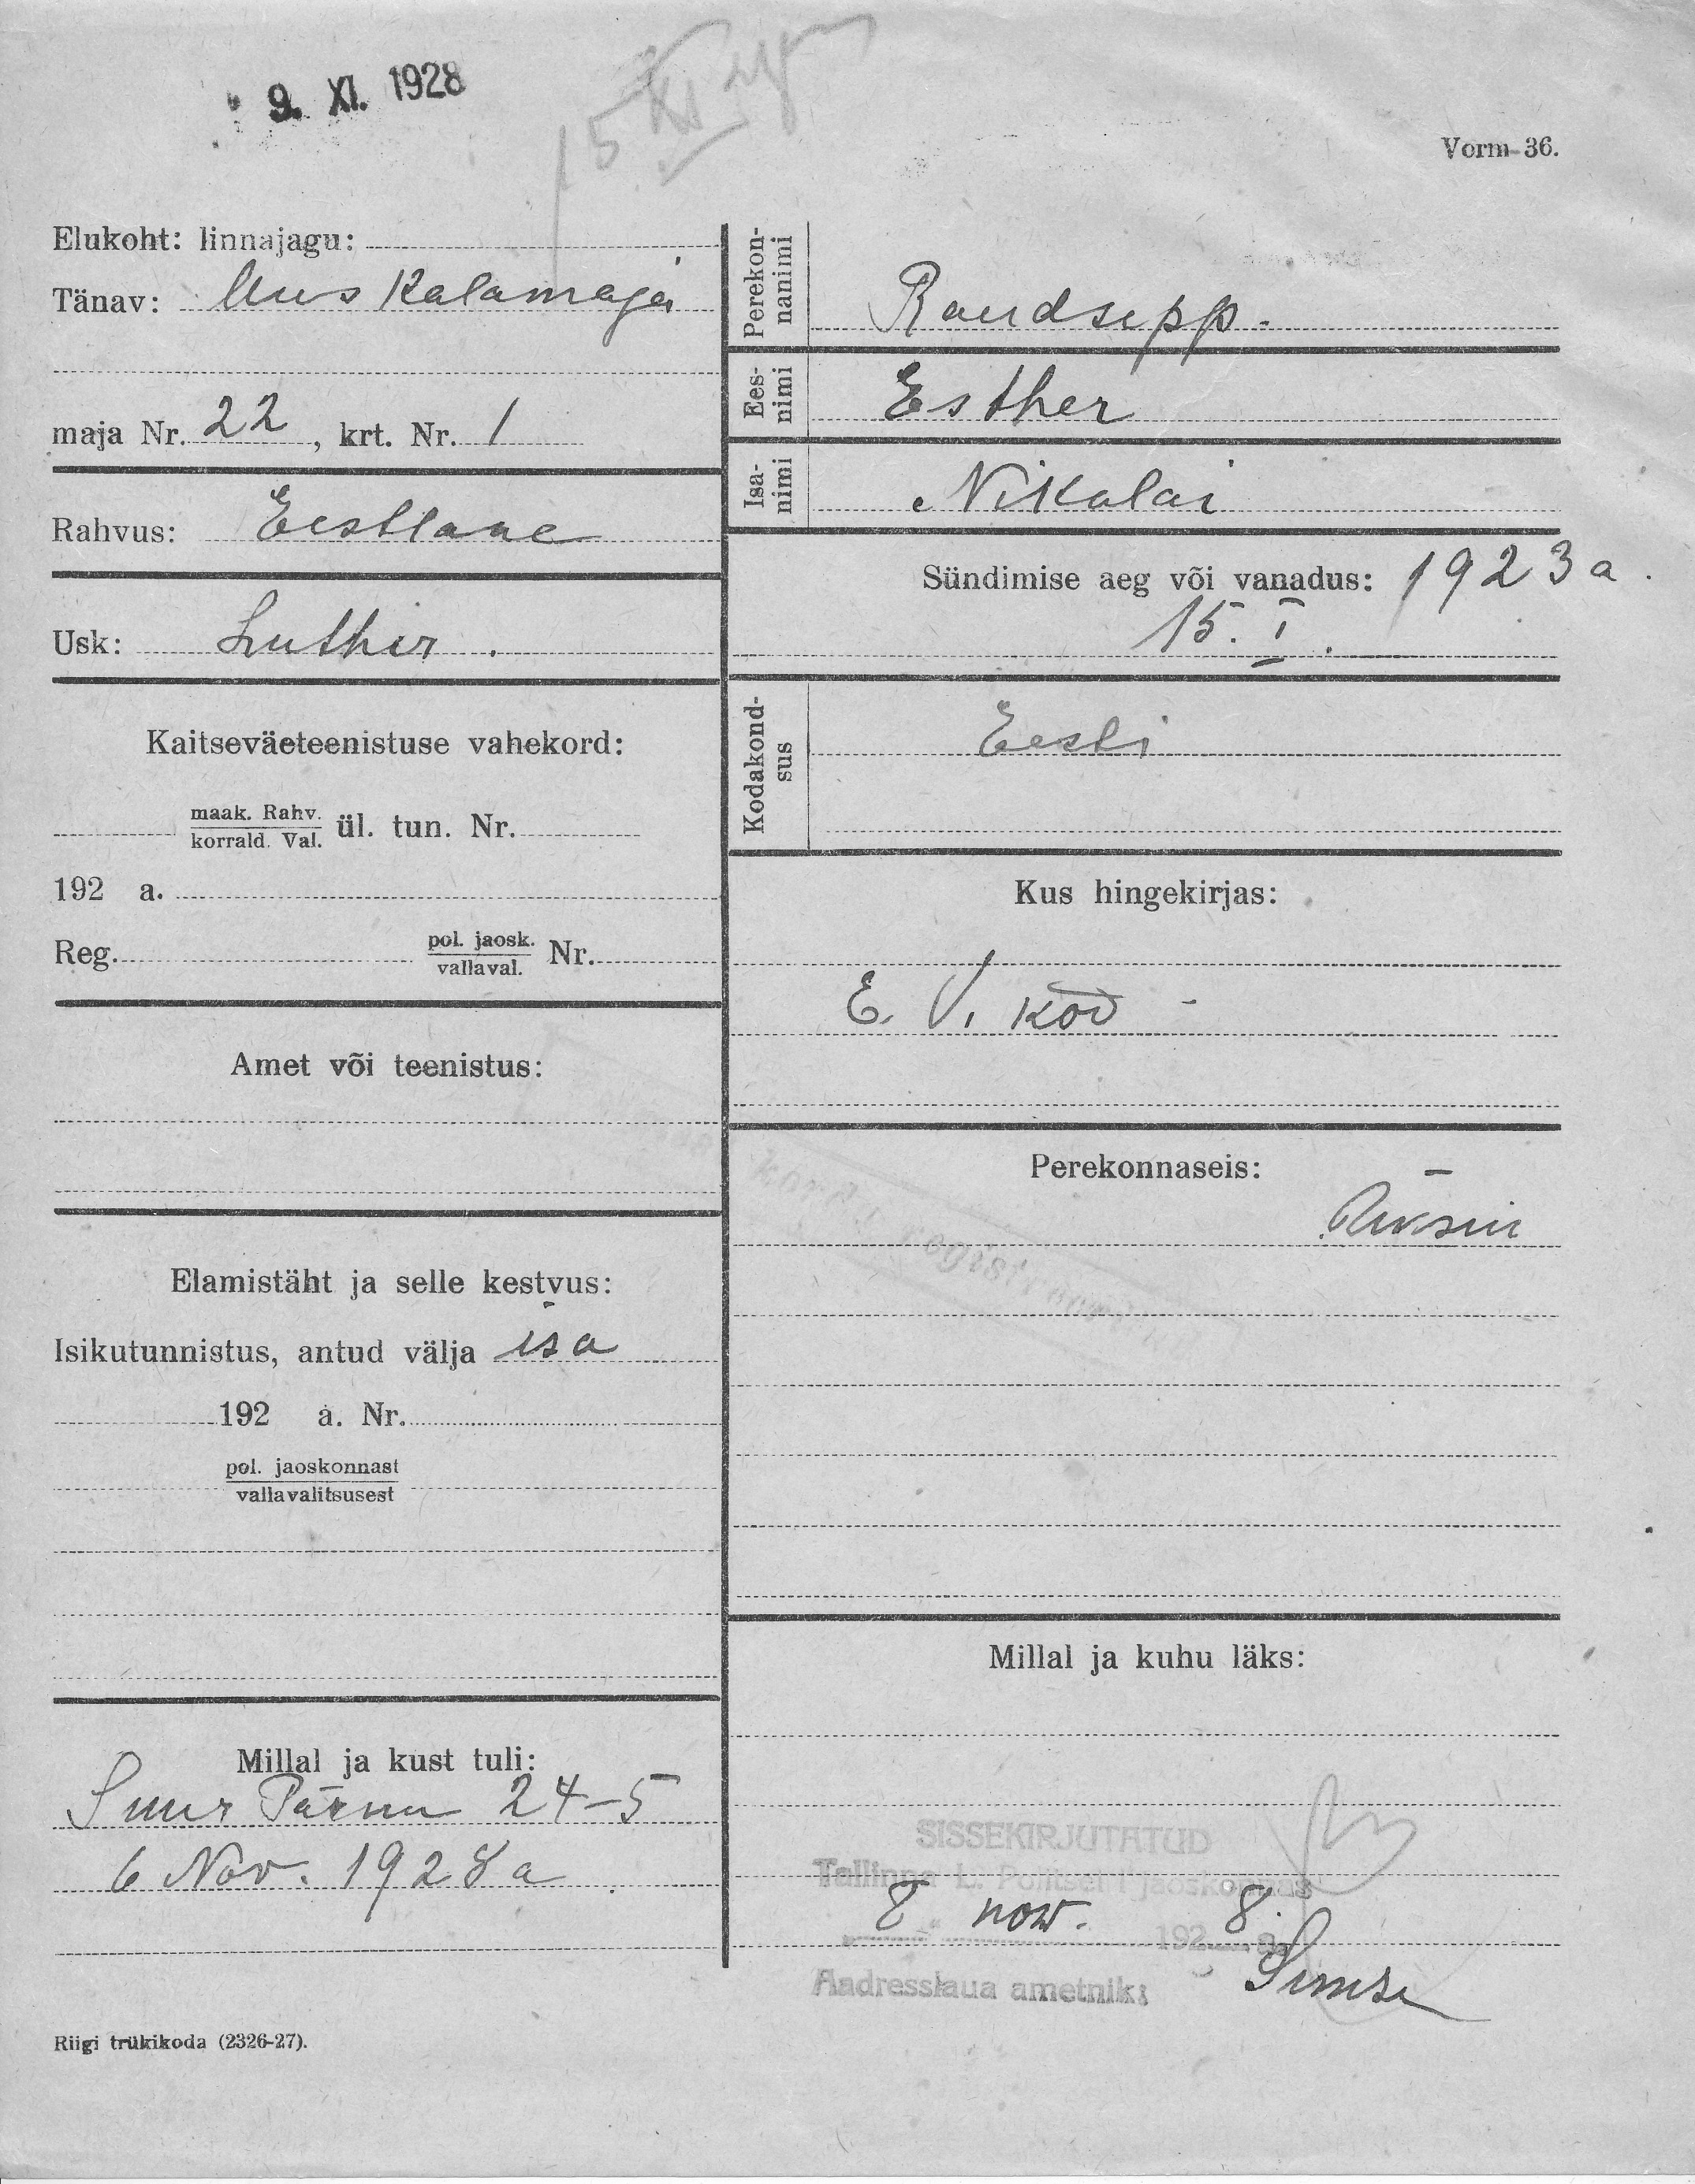 9. XI. 1928
15 XI
Vorm 36.
Elukoht: linnajagu:
Tänav: Uus Kalamaja
maja Nr. 22, krt. Nr. 1
Rahvus: Eestlane
Usk: Luther.
Kaitseväeteenistuse vahekord:
maak. Rahv.
korrald. Val. ül. tun. Nr.
192 a.
Reg. pol. jaosk. Nr.
vallaval.
Amet või teenistus:
Elamistäht ja selle kestvus:
Isikutunnistus, antud välja isa
192 a. Nr.
pol. jaoskonnast
vallavalitsusest
Millal ja kust tuli:
Suur Pärnu 24-5
6 Nov. 1928 a.
Riigi trükikoda (2326-27).
Perekon-
nanimi
Raudsepp.
Ees-
nimi
Esther
Isa-
nimi
Nikolai
Sündimise aeg või vanadus: 1923 a.
15. I.
Kodakond-
sus
Eesti
Kus hingekirjas:
E. V. kod
Perekonnaseis:
Millal ja kuhu läks:
SISSEKIRJUTATUD
Tallinna L. Politsei I jaoskonnas
8 now. 1928 a.
Aadresslaua ametnik: